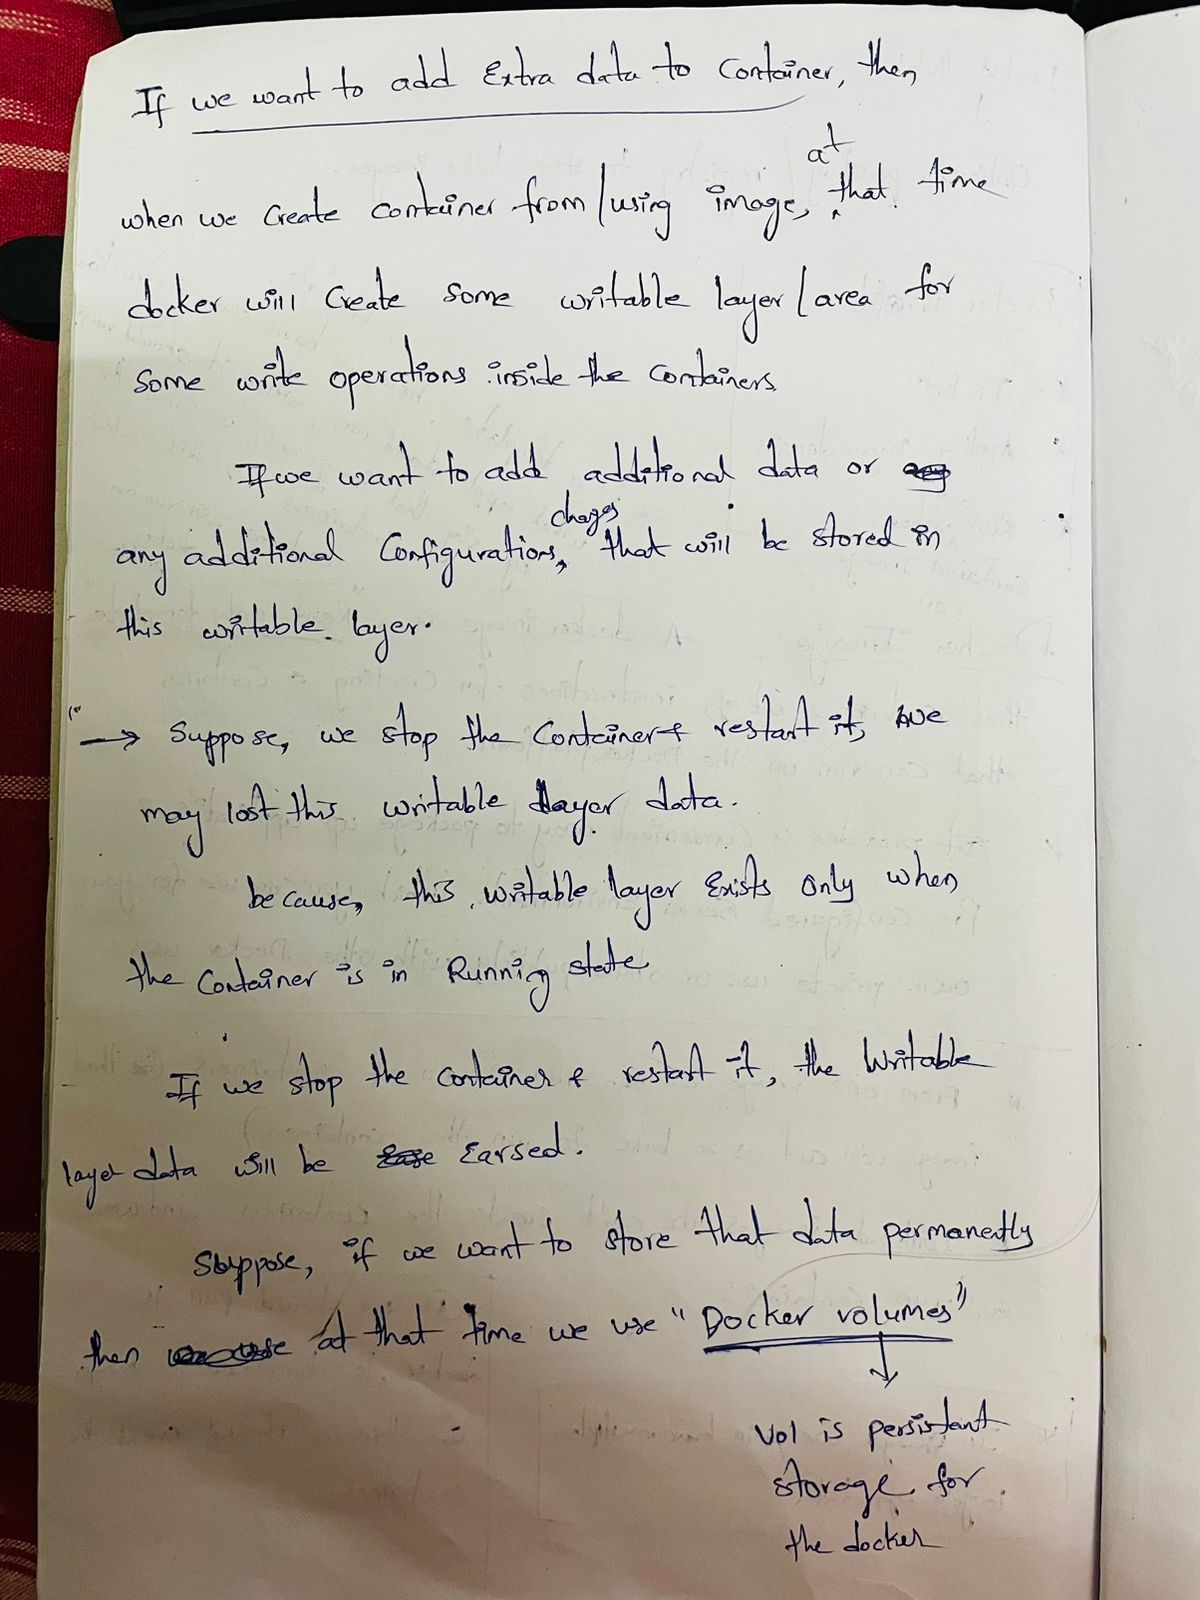 If we want to add Extra data to Container, then
when we Create container from/using image, at that time
docker will Create Some writable layer/area for
Some write operations inside the Containers
If we want to add additional data or
any additional Configurations, chages that will be stored in
this writable layer.
→ Suppose, we stop the Container & restart it, we
may lost this writable layer data.
because, this writable layer Exists Only when
the Container is in Running state
If we stop the container & restart it, the Writable
layer data will be Earsed.
Suppose, if we want to store that data permanently
then at that time we use "Docker volumes"
↓
Vol is persistant
storage for
the docker